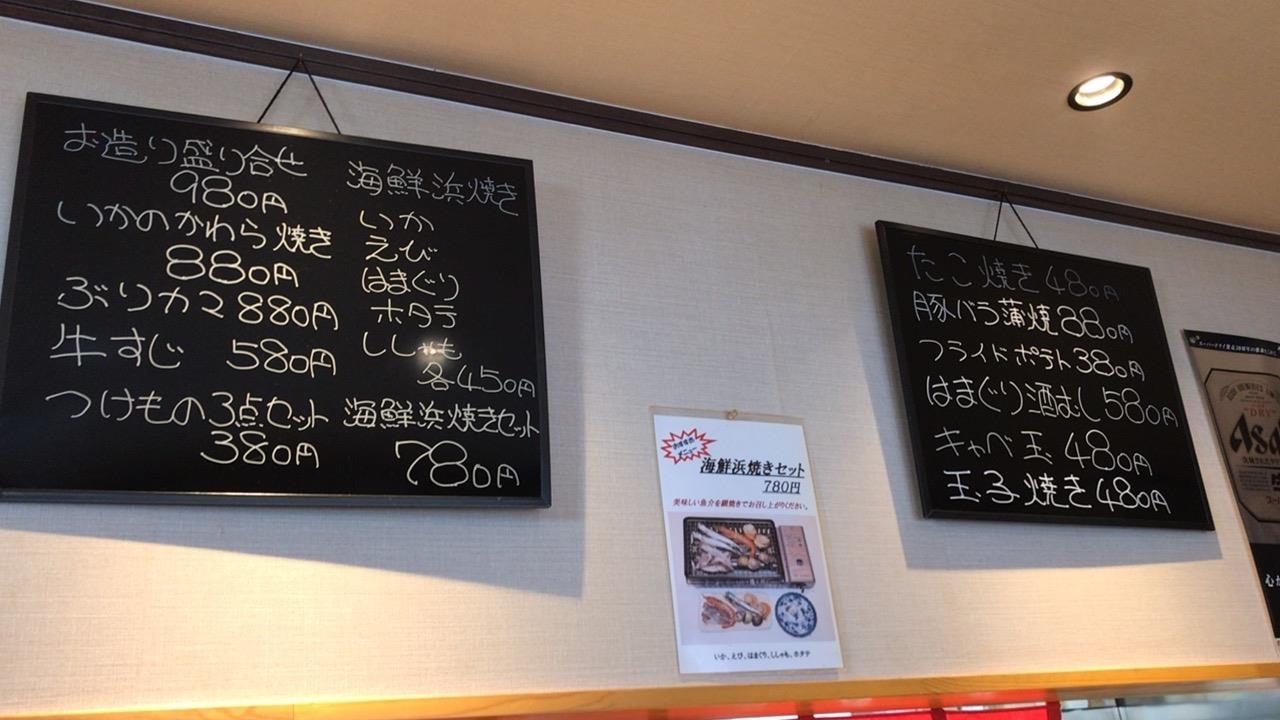 お造り盛り合せ
980円
いかのかわら焼き
880円
ぶりカマ880円
牛すじ 580円
つけもの3点セット
380円
海鮮浜焼き
いか
えび
はまぐり
ホタテ
ししゃも
各450円
海鮮浜焼きセット
780円
メニュー
海鮮浜焼きセット
780円
美味しい魚介を網焼きでお召し上がりください。
いか、えび、はまぐり、ししゃも、ホタテ
たこ焼き480円
豚バラ蒲焼880円
フライドポテト380円
はまぐり酒むし580円
キャベ玉480円
玉子焼き480円
"DRY"
Asa